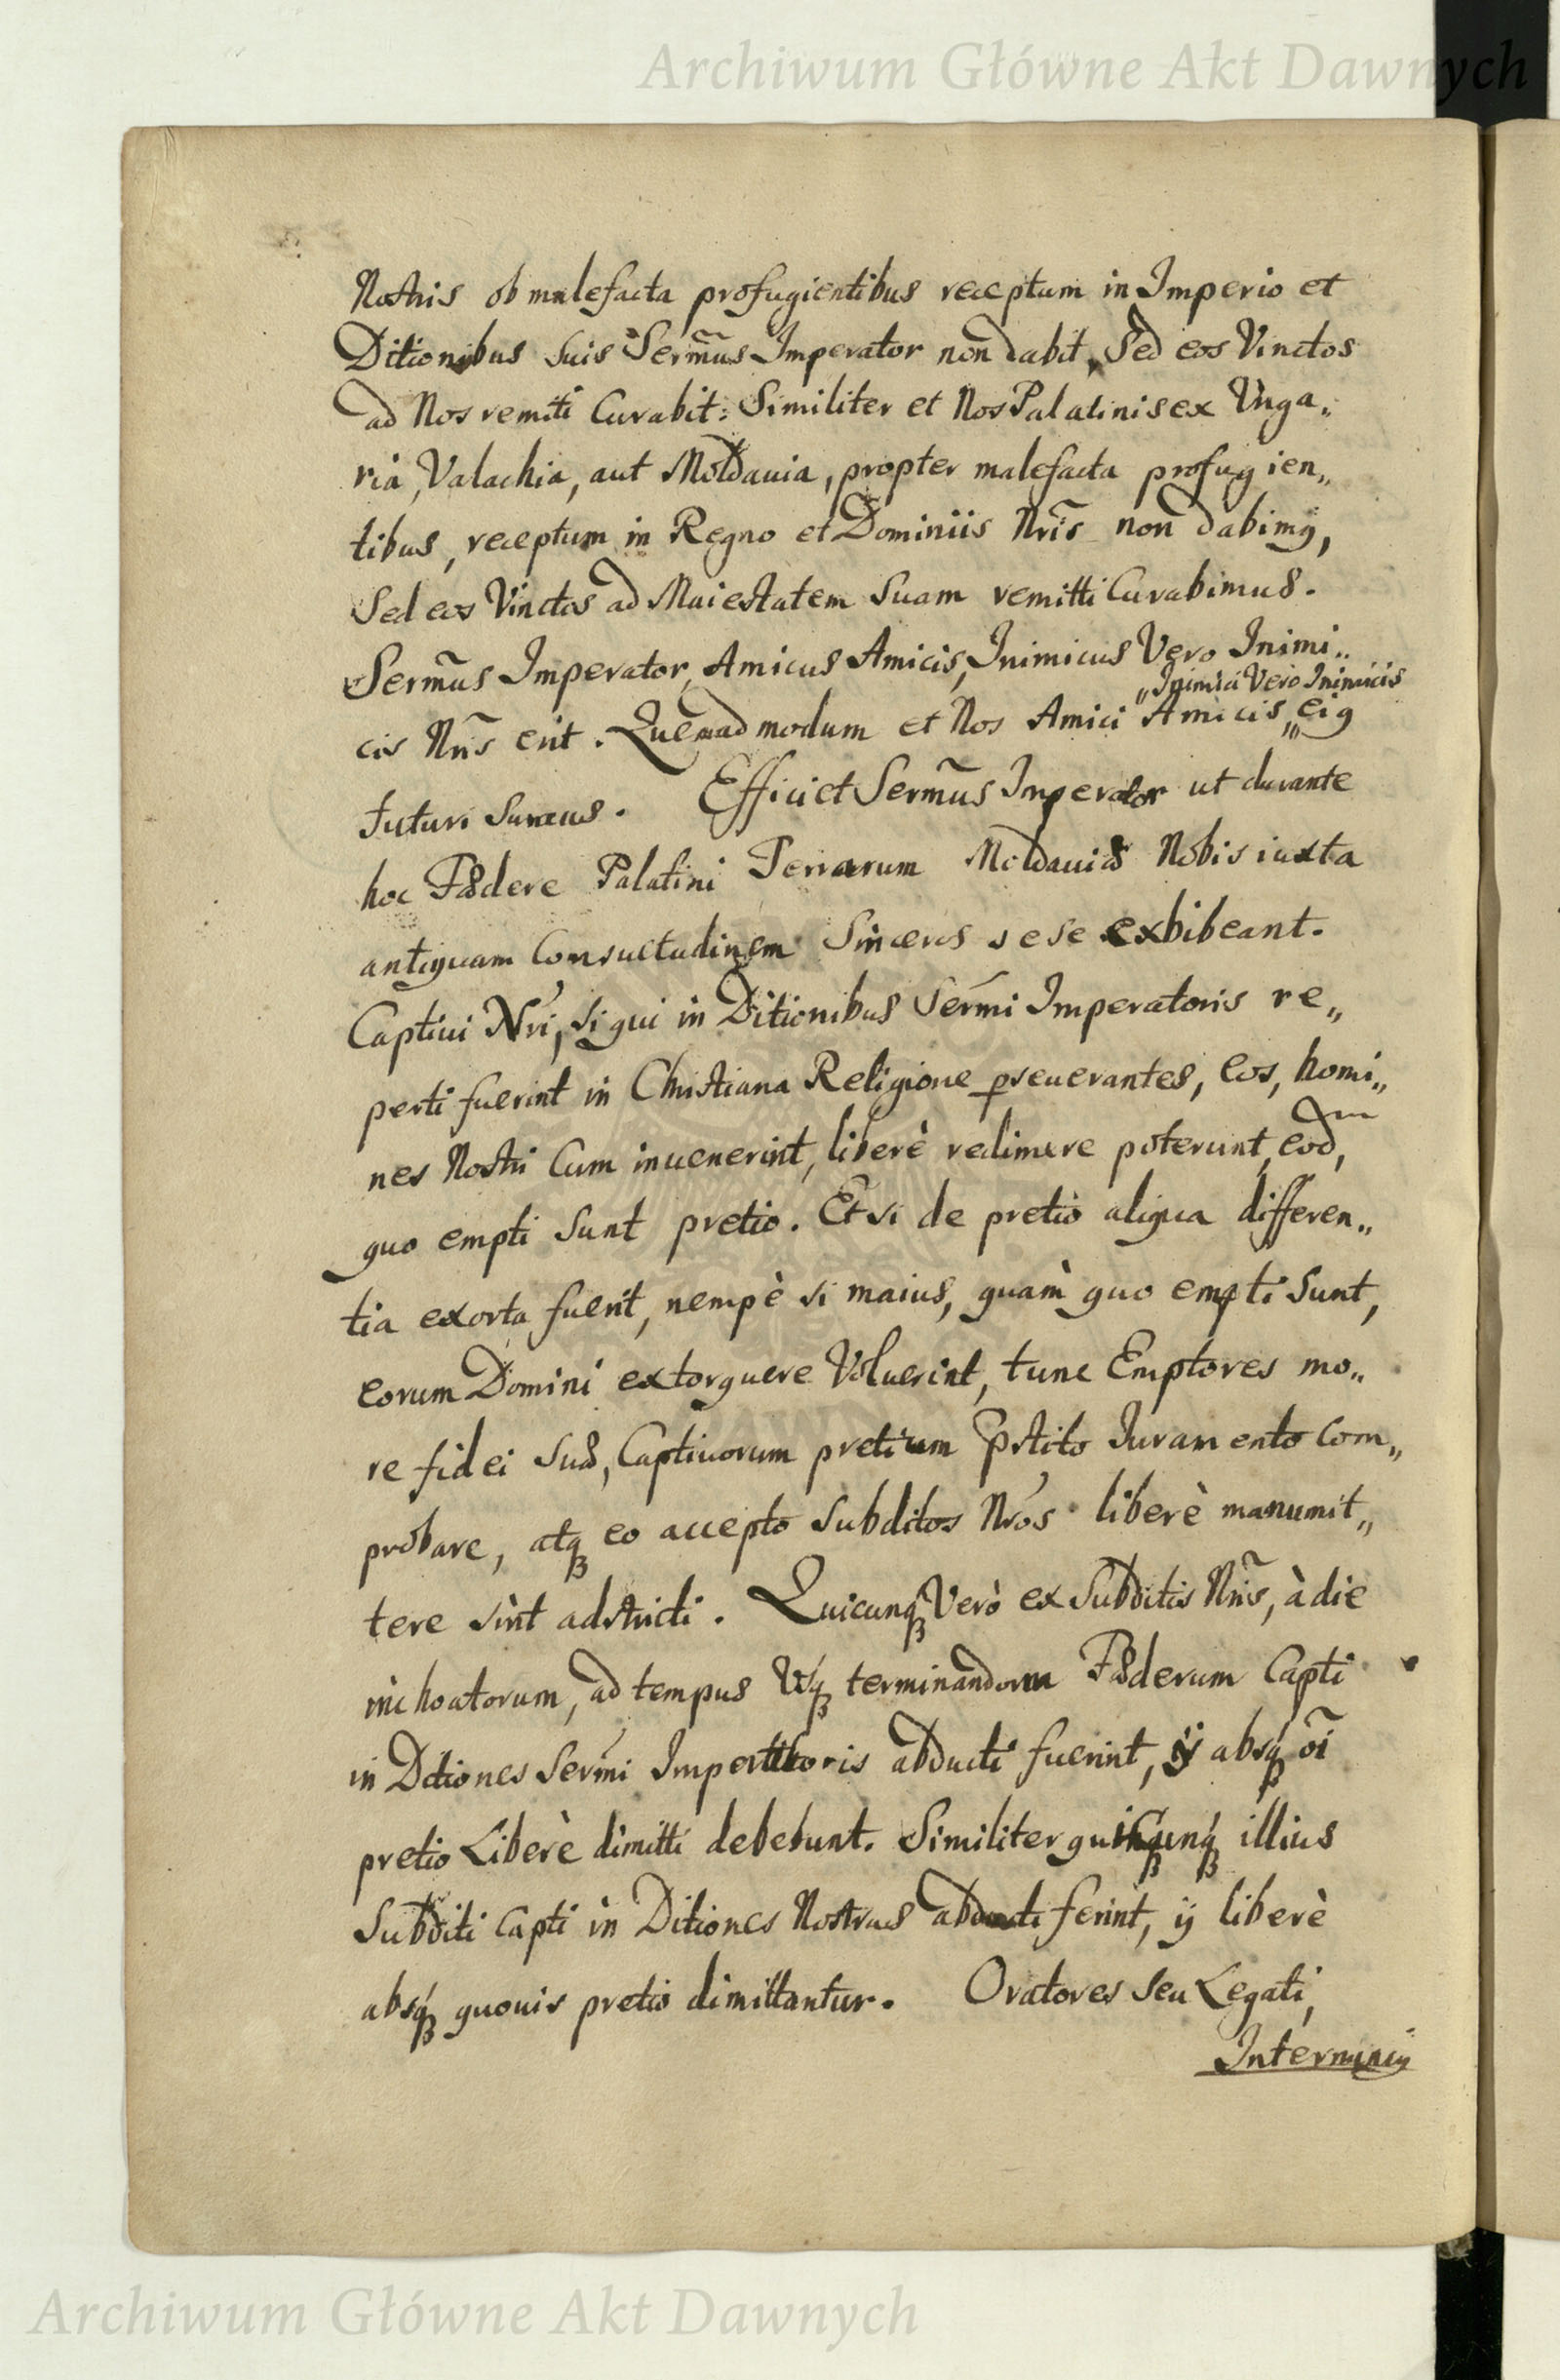 Archiwum Główne Akt Dawnych
Nostris ob malefacta profugientibus receptum in Imperio et
Ditionibus suis Serm̃us Imperator non dabit, Sed eos Vinctos
ad Nos remiti Curabit: Similiter et Nos Palatinis ex Vnga„
ria, Valachia, aut Moldauia, propter malefacta profugien„
tibus, receptum in Regno et Dominiis Nrĩs non dabimꝰ,
Sed eos Vinctos ad Maiestatem Suam remitti Curabimus.
Serm̃us Imperator, Amicus Amicis, Inimicus Vero Inimi„
„Inimici Vero Inimicis
cis Nrĩs erit. Quemadmodum et Nos Amici Amicis„ eiꝰ
futuri Sumus. Efficiet Serm̃us Imperator ut durante
hoc Fœdere Palatini Terrarum Moldauiæ Nobis iuxta
antiquam Consuetudinem Sinceros sese exhibeant.
Captiui Nrí, si qui in Ditionibus Sermí Imperatoris re„
perti fuerint in Christiana Religione ꝑseuerantes, Eos, homi„
nes Nostri Cum inuenerint, liberè redimere poterunt, eod̃,
quo empti Sunt pretio. Et si de pretio aliqua differen„
tia exorta fuerit, nempè si maius, quàm quo empti Sunt,
eorum Domini extorquere Voluerint, tunc Emptores mo„
re fidei suæ, Captiuorum pretium p̃stito Iuramento Com„
probare, atqꝫ eo accepto Subditos Nrós liberè manumit„
tere sint adstricti. Quicunqꝫ Verò ex Subditis Nrĩs, à die
inchoatorum, ad tempus Vsqꝫ terminandorum Fœderum Capti
in Ditiones Sermí Imperatoris abducti fuerint, ij absqꝫ oĩ
pretio Liberè dimitti debebunt. Similiter quicunqꝫ illius
Subditi Capti in Ditiones Nostras abducti ferint, ij liberè
absqꝫ quouis pretio dimittantur. Oratores seu Legati,
Internuncij
Archiwum Główne Akt Dawnych